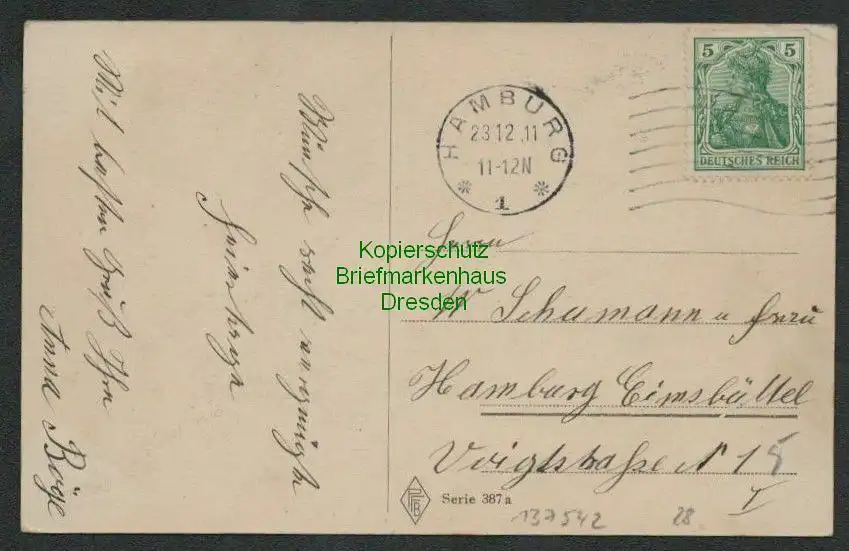 Wünsche recht vergnügte
Feiertage
Mit besten Gruß Ihre
Anna Böge
HAMBURG
23.12.11
11-12N
* 1 *
5 5
DEUTSCHES REICH
Kopierschutz
Briefmarkenhaus
Dresden
Herrn
W Schumann u Frau
Hamburg Eimsbüttel
Voigtstrasse N 15
I
PFB
Serie 387a
137542 28